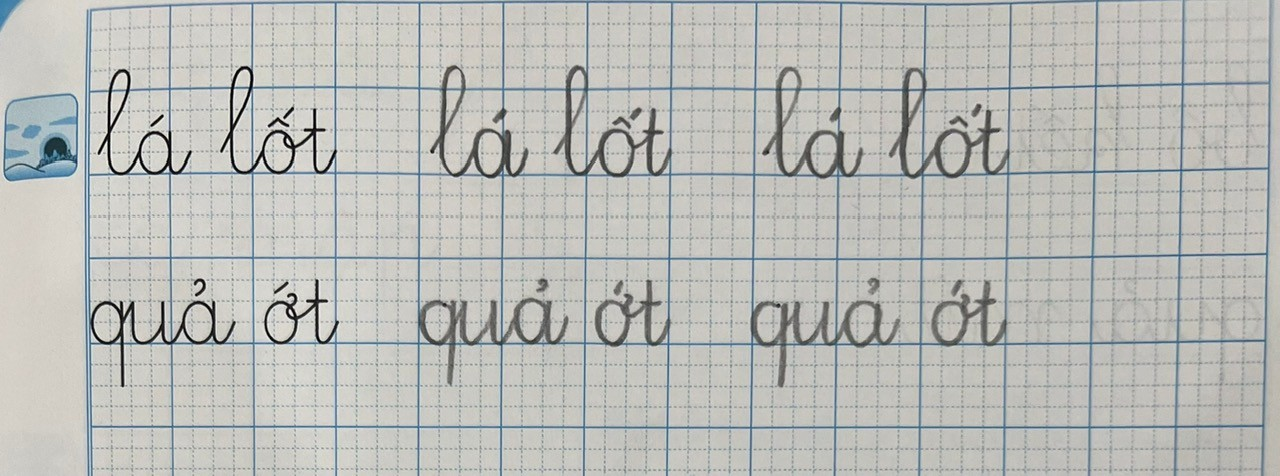 lá lốt lá lốt lá lốt
quả ớt quả ớt quả ớt